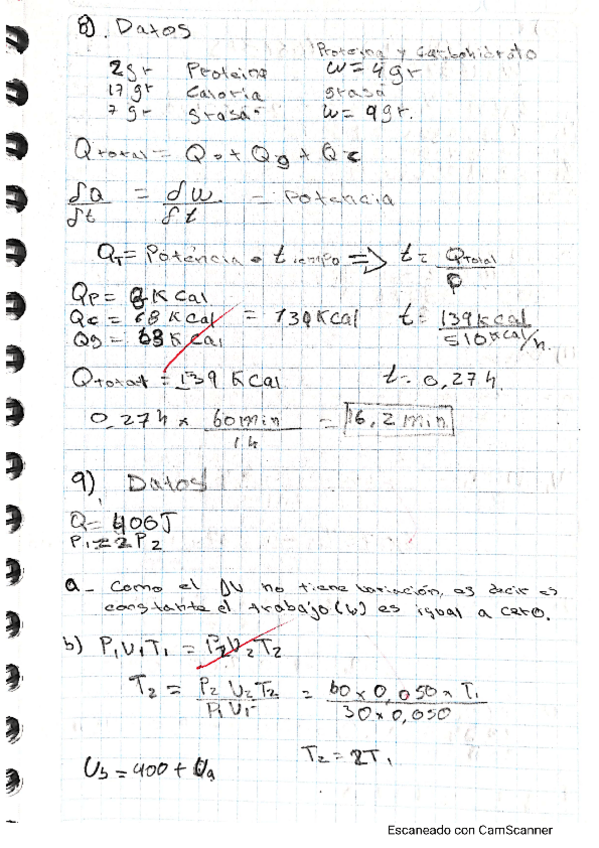 8). Datos
Proteina y Carbohidrato
2gr Proteina w=4gr
17 gr Caloria grasa
7 gr grasa w= 9gr.
Qtotal = Q + Qg + Qc
δQ/δt = δw/δt = Potencia
QT= Potencia • tiempo => t= QTotal/P
QP= 8 KCal
Qc = 68 KCal = 139KCal t= 139Kcal/510Kcal/h.
Qg = 63 KCal
Qtotal = 139 KCal t= 0,27 h.
0,27h x 60min/1h = 16,2 min
9), Datos
Q= 400J
P1=2P2
a_ Como el ΔV no tiene variación, es decir es
constante el trabajo (w) es igual a cero.
b) P1V1T1 = P2V2T2
T2 = P2 V2 T2/P1 V1 = 60 x 0,050 x T1/30 x 0,050
T2 = 2T1
Ub = 400 + Ua
Escaneado con CamScanner